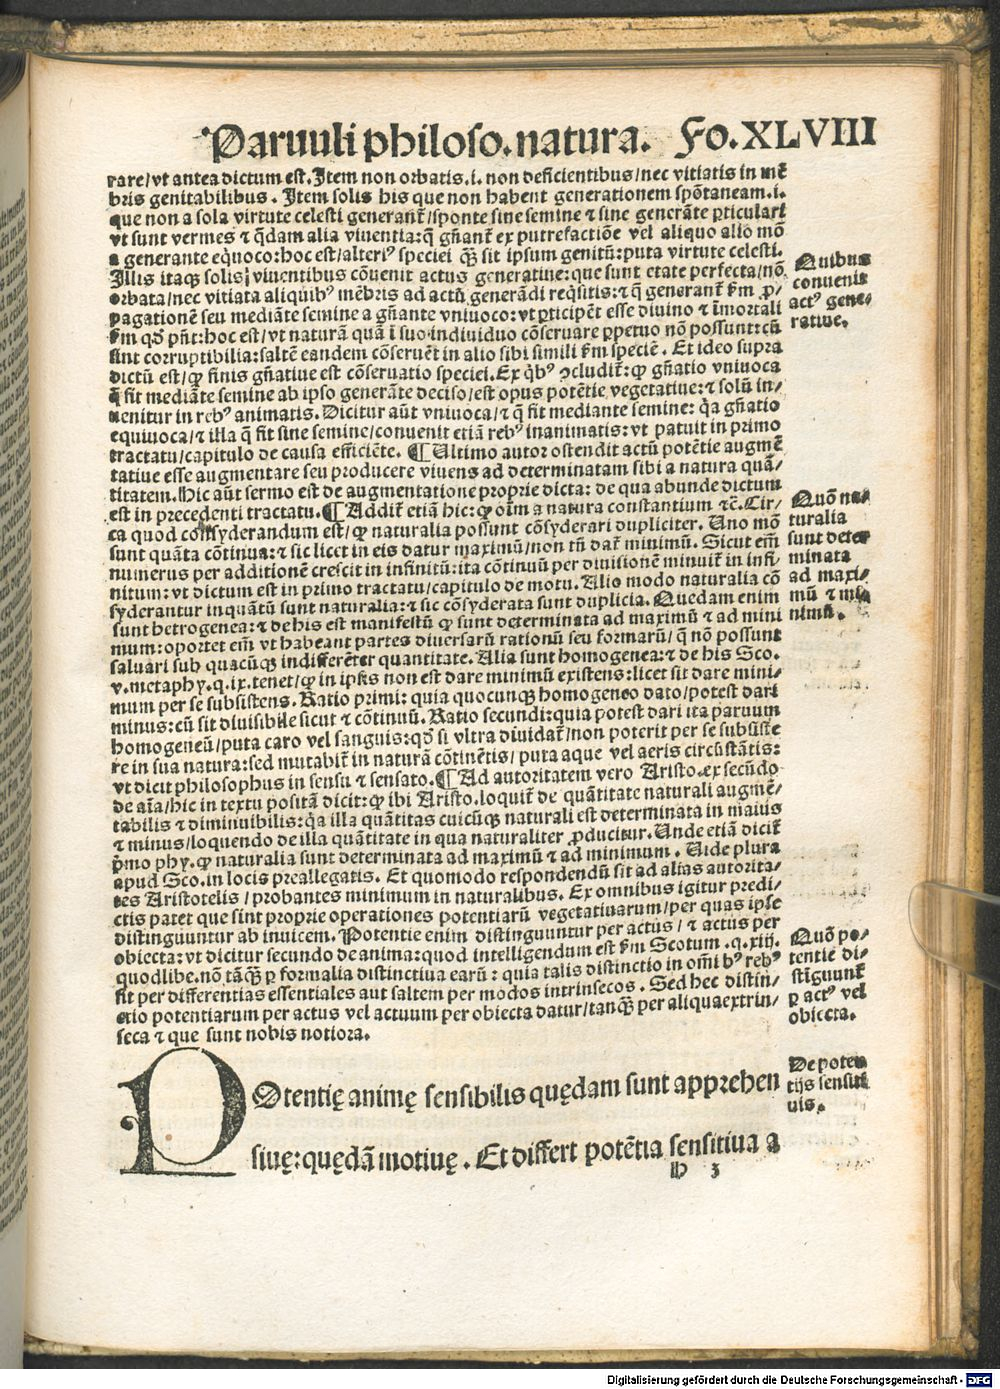 Paruuli philoso. natura. Fo. XLVIII
rare/vt antea dictum est. Item non orbatis.i. non deficientibus/nec vitiatis in mē
bris genitabilibus. Item solis his que non habent generationem spōtaneam.i.
que non a sola virtute celesti generant̄/sponte sine semine ⁊ sine generāte ꝑticulari
vt sunt vermes ⁊ q̄dam alia viuentia: q̄ gn̄ant̄ ex putrefactiōe vel aliquo alio mō
a generante eq̄uoco: hoc est/alteriꝰ speciei q̄ꝫ sit ipsum genitū: puta virtute celesti.
Illis itaqꝫ solis viuentibus cōuenit actus generatiue: que sunt etate perfecta/nō
orbata/nec vitiata aliquibꝰ mēbris ad actū generādi reqͥsitis: ⁊ q̄ generant̄ ẜm ꝓ-
pagationē seu mediāte semine a gn̄ante vniuoco: vt ꝑticipēt esse diuino ⁊ īmortali
ẜm qd̓ pn̄t: hoc est/vt naturā quā ī suo indiuiduo cōseruare ꝑpetuo nō possunt: cū
sint corruptibilia: saltē eandem cōseruēt in alio sibi simili ẜm speciē. Et ideo supra
dictū est/ꝙ finis gn̄atiue est cōseruatio speciei. Ex qͥbꝰ ꝯcludit̄: ꝙ gn̄atio vniuoca
q̄ fit mediāte semine ab ipso generāte deciso/est opus potētie vegetatiue: ⁊ solū in-
uenitur in rebꝰ animatis. Dicitur aūt vniuoca/⁊ q̄ fit mediante semine: qͥa gn̄atio
equiuoca/⁊ illa q̄ fit sine semine/conuenit etiā rebꝰ inanimatis: vt patuit in primo
tractatu/capitulo de causa efficiēte. ¶ Ultimo autor ostendit actū potētie augmē
tatiue esse augmentare seu producere viuens ad determinatam sibi a natura quā-
titatem. Hic aūt sermo est de augmentatione proprie dicta: de qua abunde dictum
est in precedenti tractatu. ¶ Addit̄ etiā hic: ꝙ oīm a natura constantium ⁊c̄. Cir-
ca quod consyderandum est/ꝙ naturalia possunt cōsyderari dupliciter. Uno mō
sunt quāta cōtinua: ⁊ sic licet in eis datur maximū/non tn̄ dat̄ minimū. Sicut em̄
numerus per additionē crescit in infinitū: ita cōtinuū per diuisionē minuit̄ in infi-
nitum: vt dictum est in primo tractatu/capitulo de motu. Alio modo naturalia cō
syderantur inquātū sunt naturalia: ⁊ sic cōsyderata sunt duplicia. Quedam enim
sunt hetrogenea: ⁊ de his est manifestū ꝙ sunt determinata ad maximū ⁊ ad mini
mum: oportet em̄ vt habeant partes diuersarū rationū seu formarū/q̄ nō possunt
saluari sub quacūqꝫ indifferēter quantitate. Alia sunt homogenea: ⁊ de his Sco.
v. metaphy. q. ix. tenet/ꝙ in ipsis non est dare minimū existens: licet sit dare mini-
mum per se subsistens. Ratio primi: quia quocunqꝫ homogeneo dato/potest dari
minus: cū sit diuisibile sicut ⁊ cōtinuū. Ratio secundi: quia potest dari ita paruum
homogeneū/puta caro vel sanguis: qd̓ si vltra diuidat̄/non poterit per se subsiste
re in sua natura: sed mutabit̄ in naturā cōtinētis/puta aque vel aeris circūstātis:
vt dicit philosophus in sensu ⁊ sensato. ¶ Ad autoritatem vero Aristo. ex secūdo
de aīa/hic in textu positā dicit: ꝙ ibi Aristo. loquit̄ de quātitate naturali augmē-
tabilis ⁊ diminuibilis: qͥa illa quātitas cuicūqꝫ naturali est determinata in maius
⁊ minus/loquendo de illa quātitate in qua naturaliter ꝓducitur. Unde etiā dicit̄
pͥmo phy. ꝙ naturalia sunt determinata ad maximū ⁊ ad minimum. Uide plura
apud Sco. in locis preallegatis. Et quomodo respondendū sit ad alias autorita-
tes Aristotelis/probantes minimum in naturalibus. Ex omnibus igitur predi-
ctis patet que sint proprie operationes potentiarū vegetatiuarum/per quas ipse
distinguuntur ab inuicem. Potentie enim distinguuntur per actus/⁊ actus per
obiecta: vt dicitur secundo de anima: quod intelligendum est ẜm Scotum. q. xiij.
quodlibe. nō tāq̄ꝫ ꝑ formalia distinctiua earū: quia talis distinctio in oīnibꝰ rebꝰ
fit per differentias essentiales aut saltem per modos intrinsecos. Sed hec distin-
ctio potentiarum per actus vel actuum per obiecta datur/tanq̄ꝫ per aliqua extrin-
seca ⁊ que sunt nobis notiora.
Quibus
conuenit
actꝰ gene-
ratiue.
Quō na-
turalia
sunt deter
minata
ad maxi-
mū ⁊ mi-
nimū.
Quō po-
tentie di-
stīguunt̄
ꝑ actꝰ vel
obiecta.
POtentię animę sensibilis quędam sunt apprehen
siuę: quędā motiuę. Et differt potētia sensitiua a
De poten
tijs sensiti
uis.
h 3
Digitalisierung gefördert durch die Deutsche Forschungsgemeinschaft - DFG